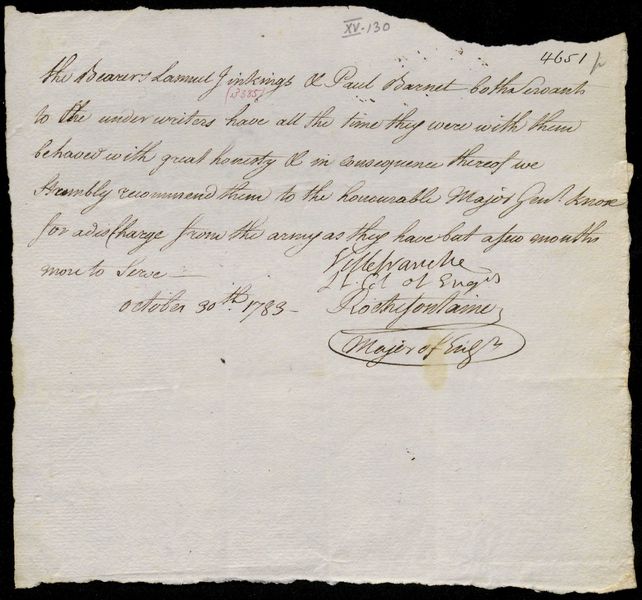 XV-130
4651
the Bearers Lamuel Jinkings & Paul Barnet both Servants
(3385)
to the under writers have all the time they were with them
behaved with great honesty & in consequence thereof we
Humbly recommend them to the honourable Major Genl. Knox
for a discharge from the army as they have but a few months
more to Serve
Villefranche
Lt. Col of Engrs
october 30th. 1783 - Rochefontaine
Major of Engrs